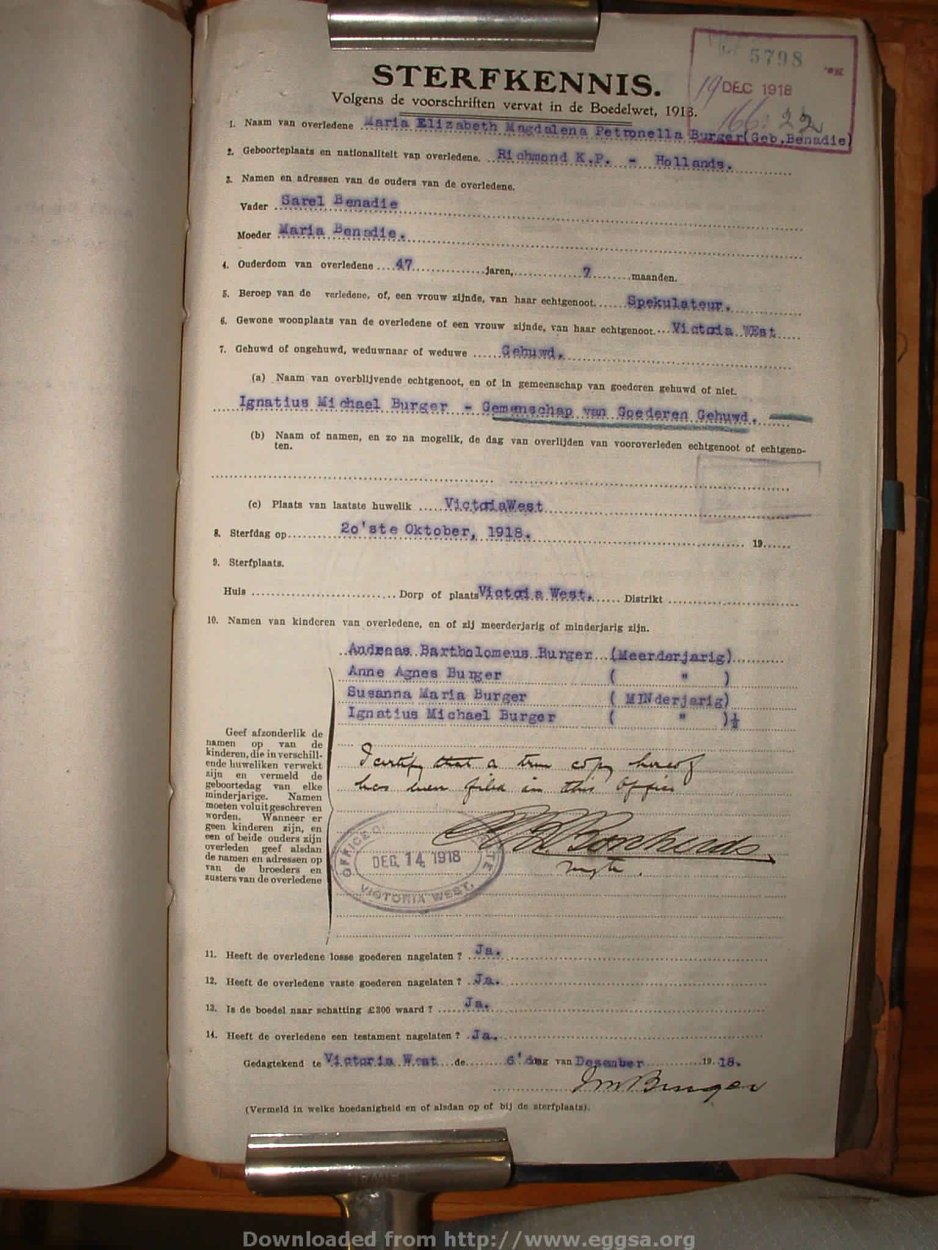 5798
19 DEC 1918
166: 22
STERFKENNIS.
Volgens de voorschriften vervat in de Boedelwet, 1913.
1. Naam van overledene Maria Elizabeth Magdalena Petronella Burger(Geb.Benadie)
2. Geboorteplaats en nationaliteit van overledene. Richmond K.P. - Hollands.
3. Namen en adressen van de ouders van de overledene.
Vader Sarel Benadie
Moeder Maria Benadie.
4. Ouderdom van overledene 47 jaren, 7 maanden.
5. Beroep van de verledene, of, een vrouw zijnde, van haar echtgenoot. Spekulateur.
6. Gewone woonplaats van de overledene of een vrouw zijnde, van haar echtgenoot. Victoria WEst
7. Gehuwd of ongehuwd, weduwnaar of weduwe Gehuwd.
(a) Naam van overblijvende echtgenoot, en of in gemeenschap van goederen gehuwd of niet.
Ignatius Michael Burger - Gemenschap van Goederen Gehuwd.
(b) Naam of namen, en zo na mogelik, de dag van overlijden van vooroverleden echtgenoot of echtgeno-
ten.
(c) Plaats van laatste huwelik VictoriaWest
8. Sterfdag op 20'ste Oktober, 1918. 19
9. Sterfplaats.
Huis Dorp of plaats Victoria West. Distrikt
10. Namen van kinderen van overledene, en of zij meerderjarig of minderjarig zijn.
Andreas Bartholomeus Burger (Meerderjarig)
Anne Agnes Burger ( " )
Susanna Maria Burger ( MINderjarig)
Ignatius Michael Burger ( " )½
Geef afzonderlik de
namen op van de
kinderen, die in verschill-
ende huweliken verwekt
zijn en vermeld de
geboortedag van elke
minderjarige. Namen
moeten voluit geschreven
worden. Wanneer er
geen kinderen zijn, en
een of beide ouders zijn
overleden geef alsdan
de namen en adressen op
van de broeders en
zusters van de overledene
I certify that a true copy hereof
has been filed in this Office
OFFICE O
DEC 14 1918
TE
VICTORIA WEST.
11. Heeft de overledene losse goederen nagelaten? Ja.
12. Heeft de overledene vaste goederen nagelaten? Ja.
13. Is de boedel naar schatting £300 waard? Ja.
14. Heeft de overledene een testament nagelaten? Ja.
Gedagtekend te Victoria West de 6'dag van Desember 19 18.
I M Burger
(Vermeld in welke hoedanigheid en of alsdan op of bij de sterfplaats).
Downloaded from http://www.eggsa.org